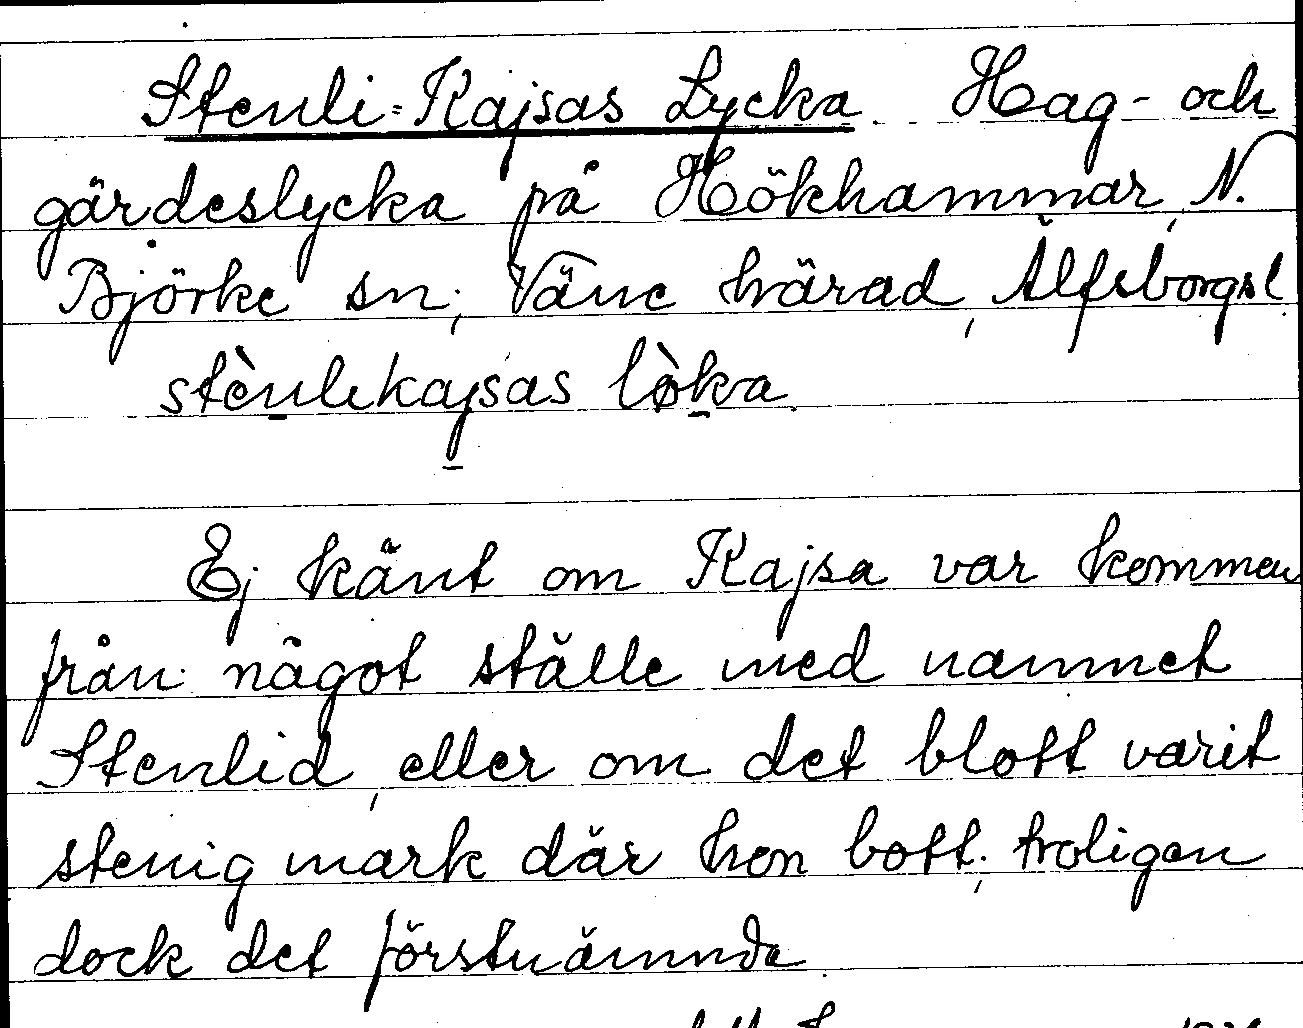 Stenli-Kajsas Lycka. Hag- och
gärdeslycka på Hökhammar, N.
Björke sn; Väne härad, Älfsborgsl.
stènlikajsas lòka.
Ej känt om Kajsa var kommen
från något ställe med namnet
Stenlid, eller om det blott varit
stenig mark där hon bott; troligen
dock det förstnämnda.